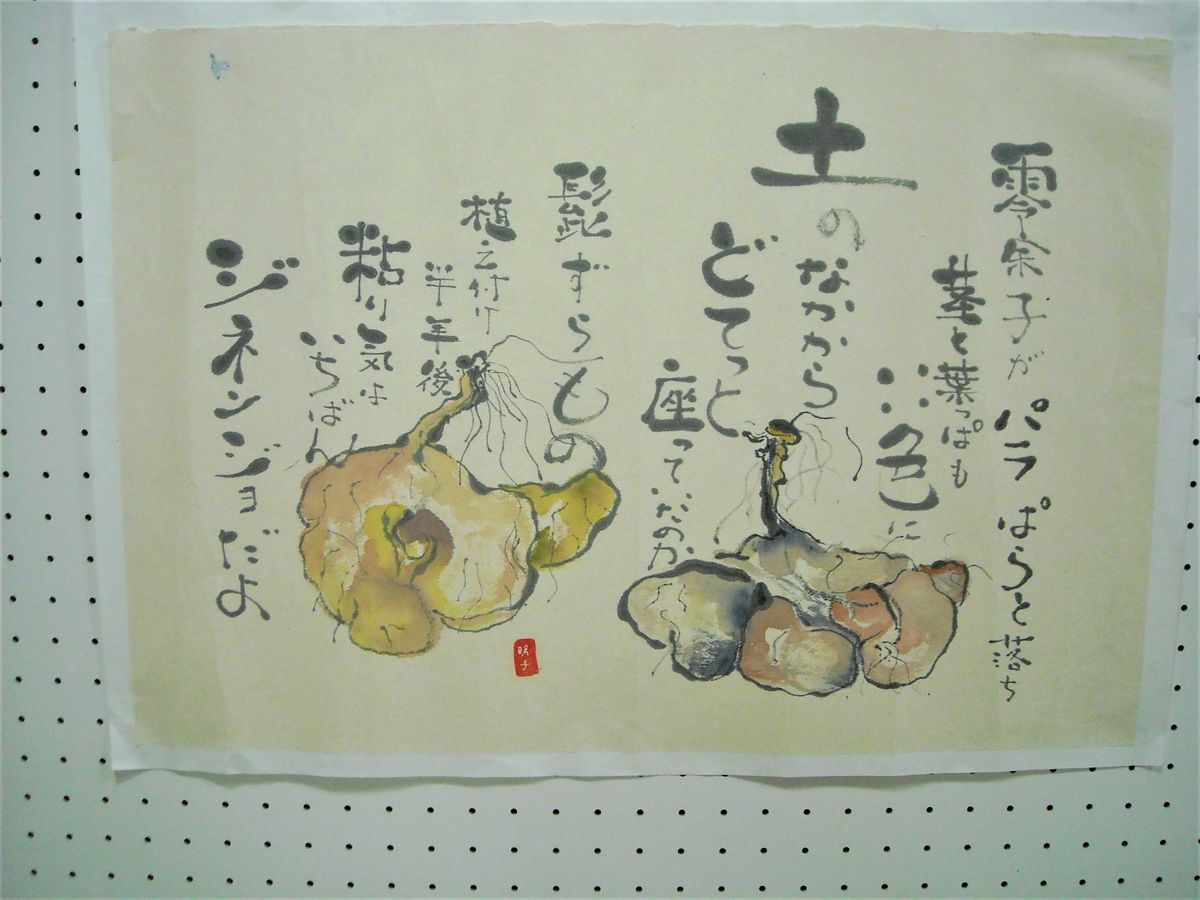 零余子がパラぱらと落ち
茎と葉っぱも
いい色に
土の
なかから
どてっと
座っていたのか
髭ずらもの
植え付け
半年後
粘り気は
いちばん
ジネンジョだよ
明子